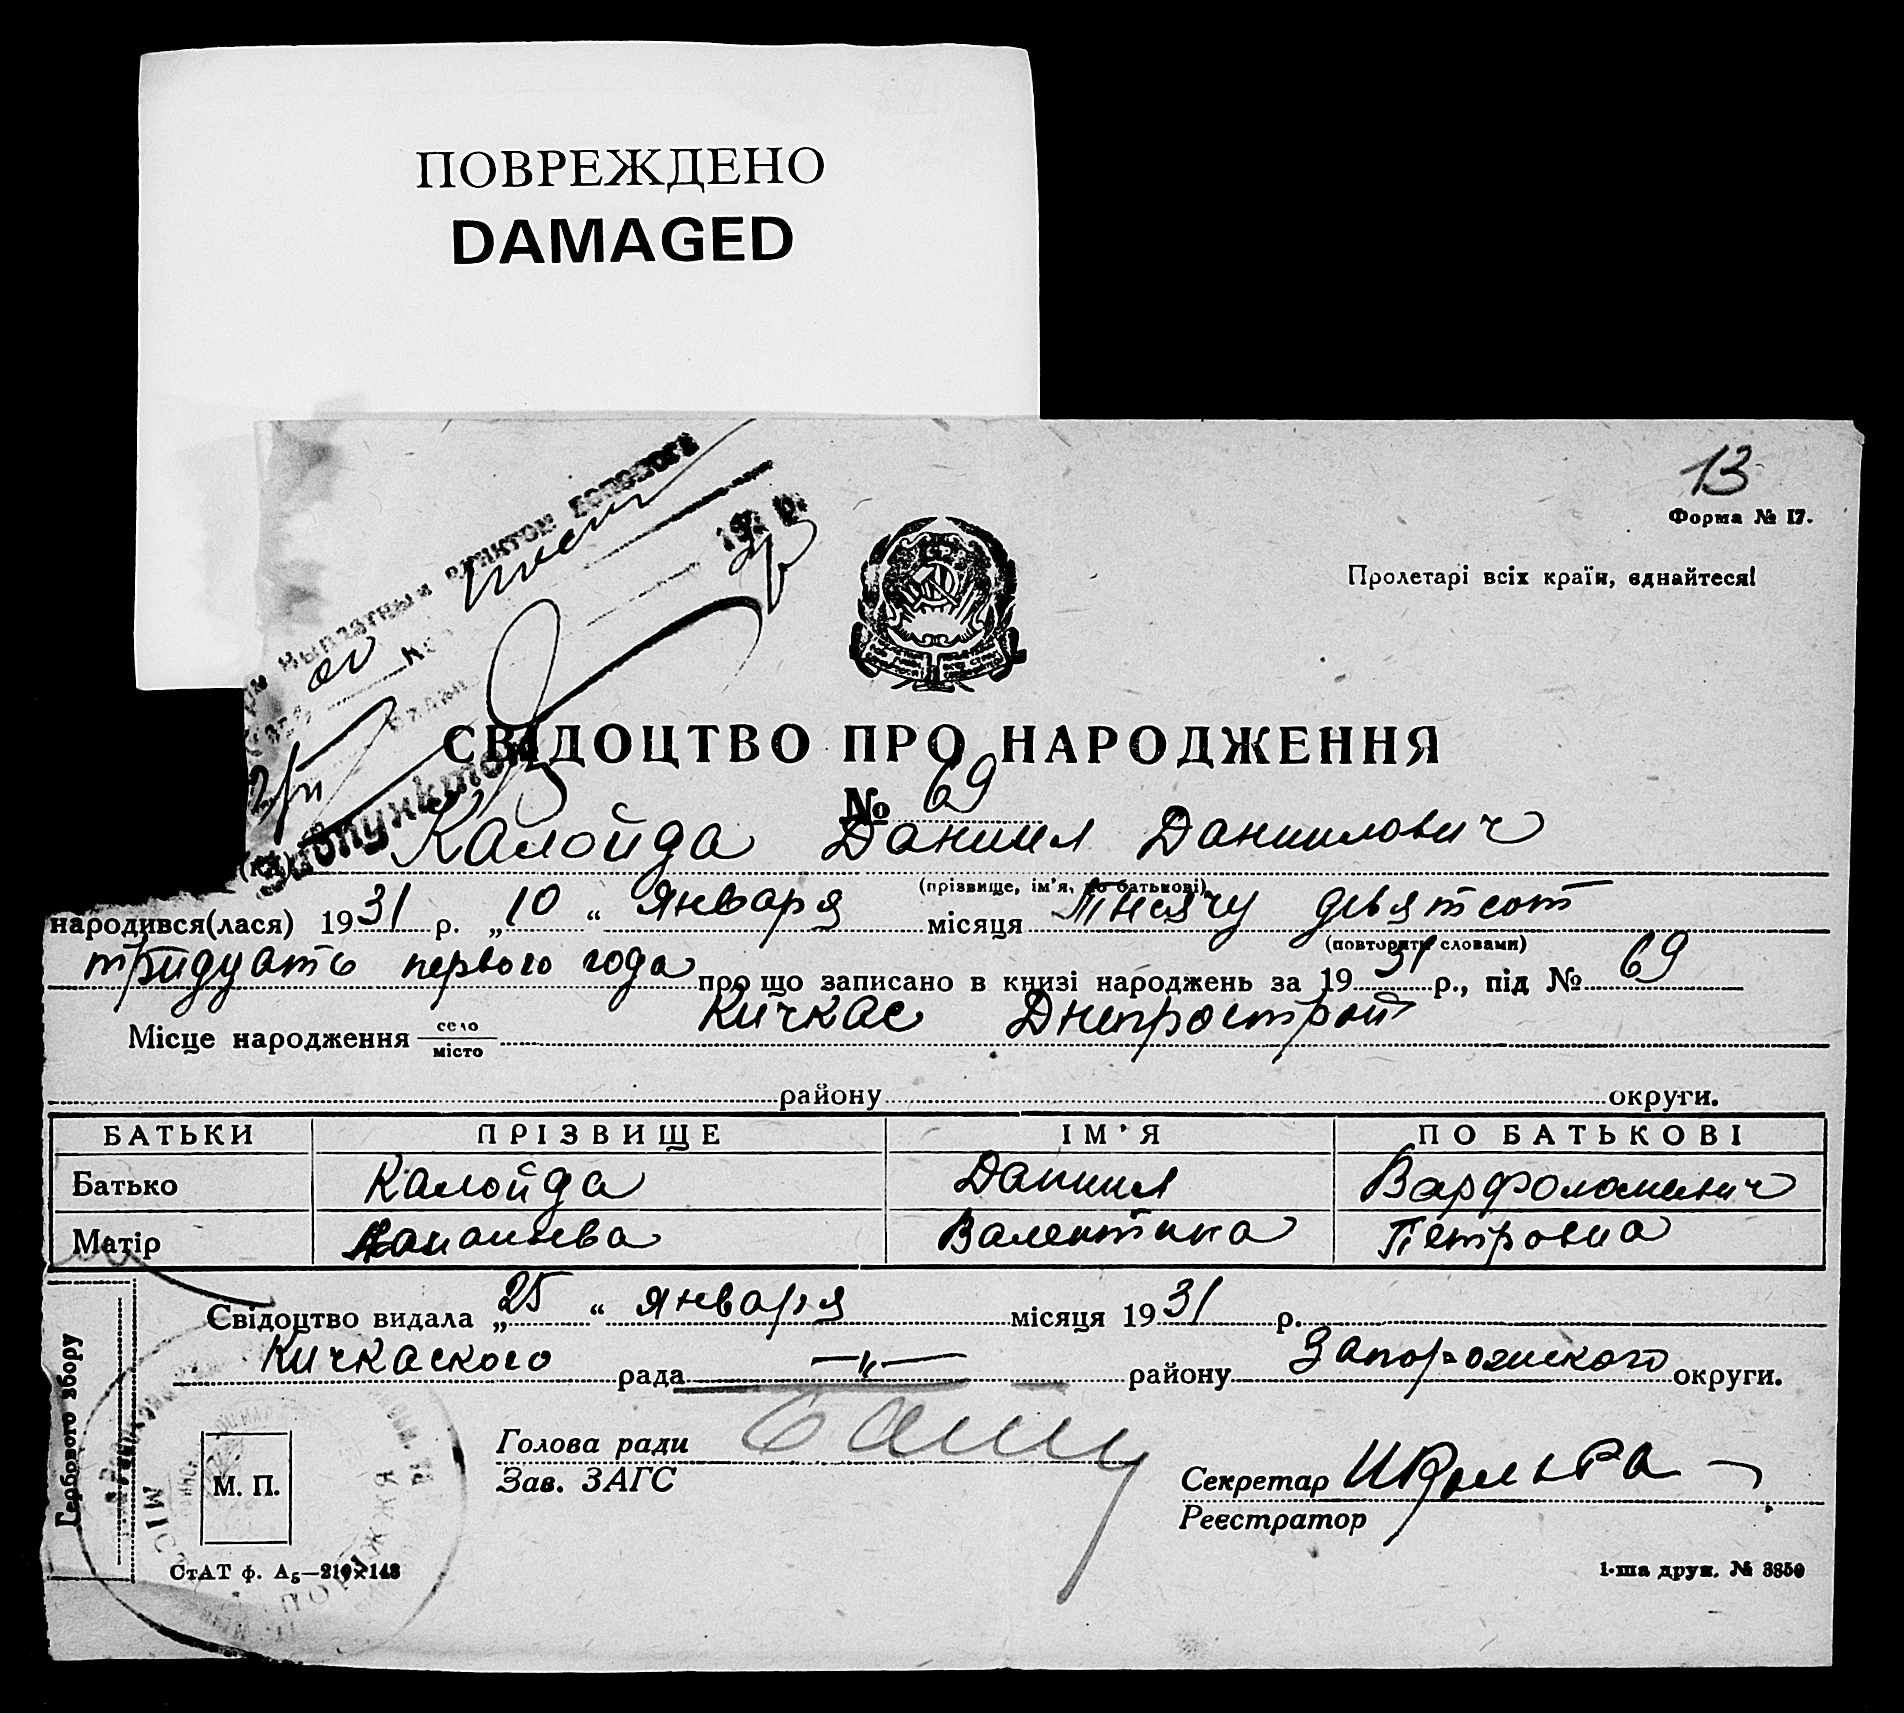 ПОВРЕЖДЕНО
DAMAGED
13
Форма № 17.
Пролетарі всіх країн, єднайтеся!
пунктом
192 р.
СВІДОЦТВО ПРО НАРОДЖЕННЯ
№ 69
Калойда Даниил Даниилович
(прізвище, ім'я, по батькові)
народився(лася) 1931 р. „10“ января місяця Тысячу девятсот
(повторити словами)
тридцать первого года про що записано в книзі народжень за 1931 р., під № 69
Місце народження село/місто Кичкас Днепрострой
району округи.
БАТЬКИ ПРІЗВИЩЕ ІМ'Я ПО БАТЬКОВІ
Батько Калойда Даниил Варфоломеевич
Матір Валентина Петровна
Свідоцтво видала „25“ января місяця 1931 р.
Кичкаского рада —"— району Запорожского округи.
Гербового збору
М. П.
Голова ради
Зав. ЗАГС
Секретар
Реєстратор
СтАТ ф. А5—210×148
1-ша друк. № 3850